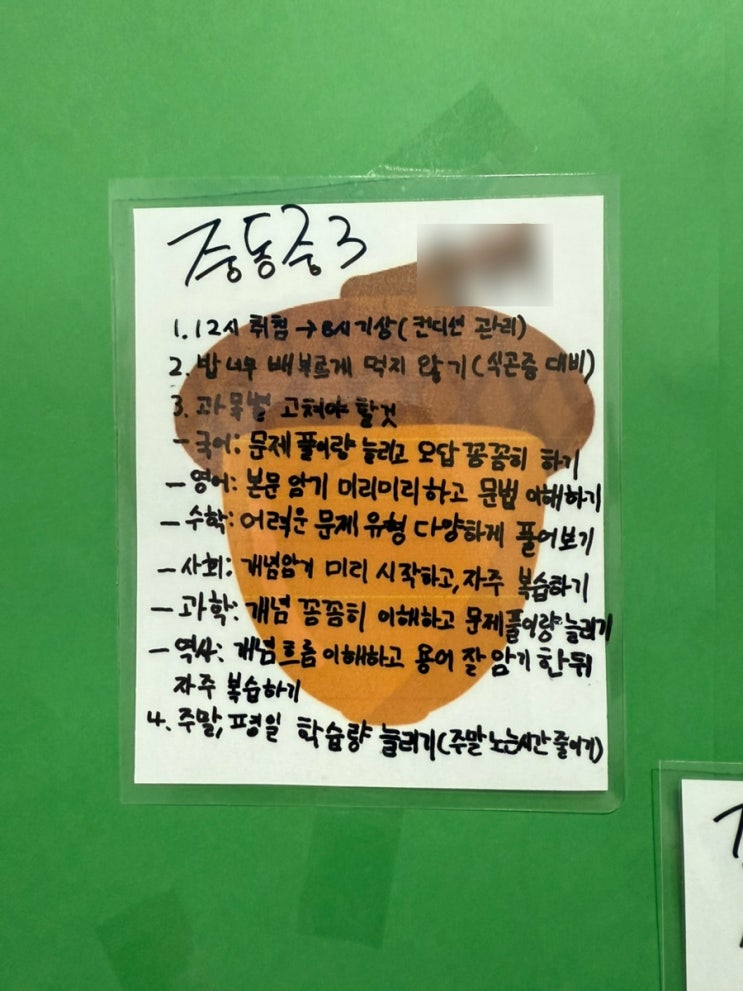 중동중3
1. 12시 취침 → 8시 기상 (컨디션 관리)
2. 밥 너무 배부르게 먹지 않기 (식곤증 대비)
3. 과목별 고쳐야 할것
- 국어: 문제풀이량 늘리고 오답 꼼꼼히 하기
- 영어: 본문 암기 미리미리하고 문법 이해하기
- 수학: 어려운 문제 유형 다양하게 풀어보기
- 사회: 개념암기 미리 시작하고, 자주 복습하기
- 과학: 개념 꼼꼼히 이해하고 문제풀이량 늘리기
- 역사: 개념흐름 이해하고 용어 잘 암기 한뒤
자주 복습하기
4. 주말, 평일 학습량 늘리기 (주말 노는시간 줄이기)